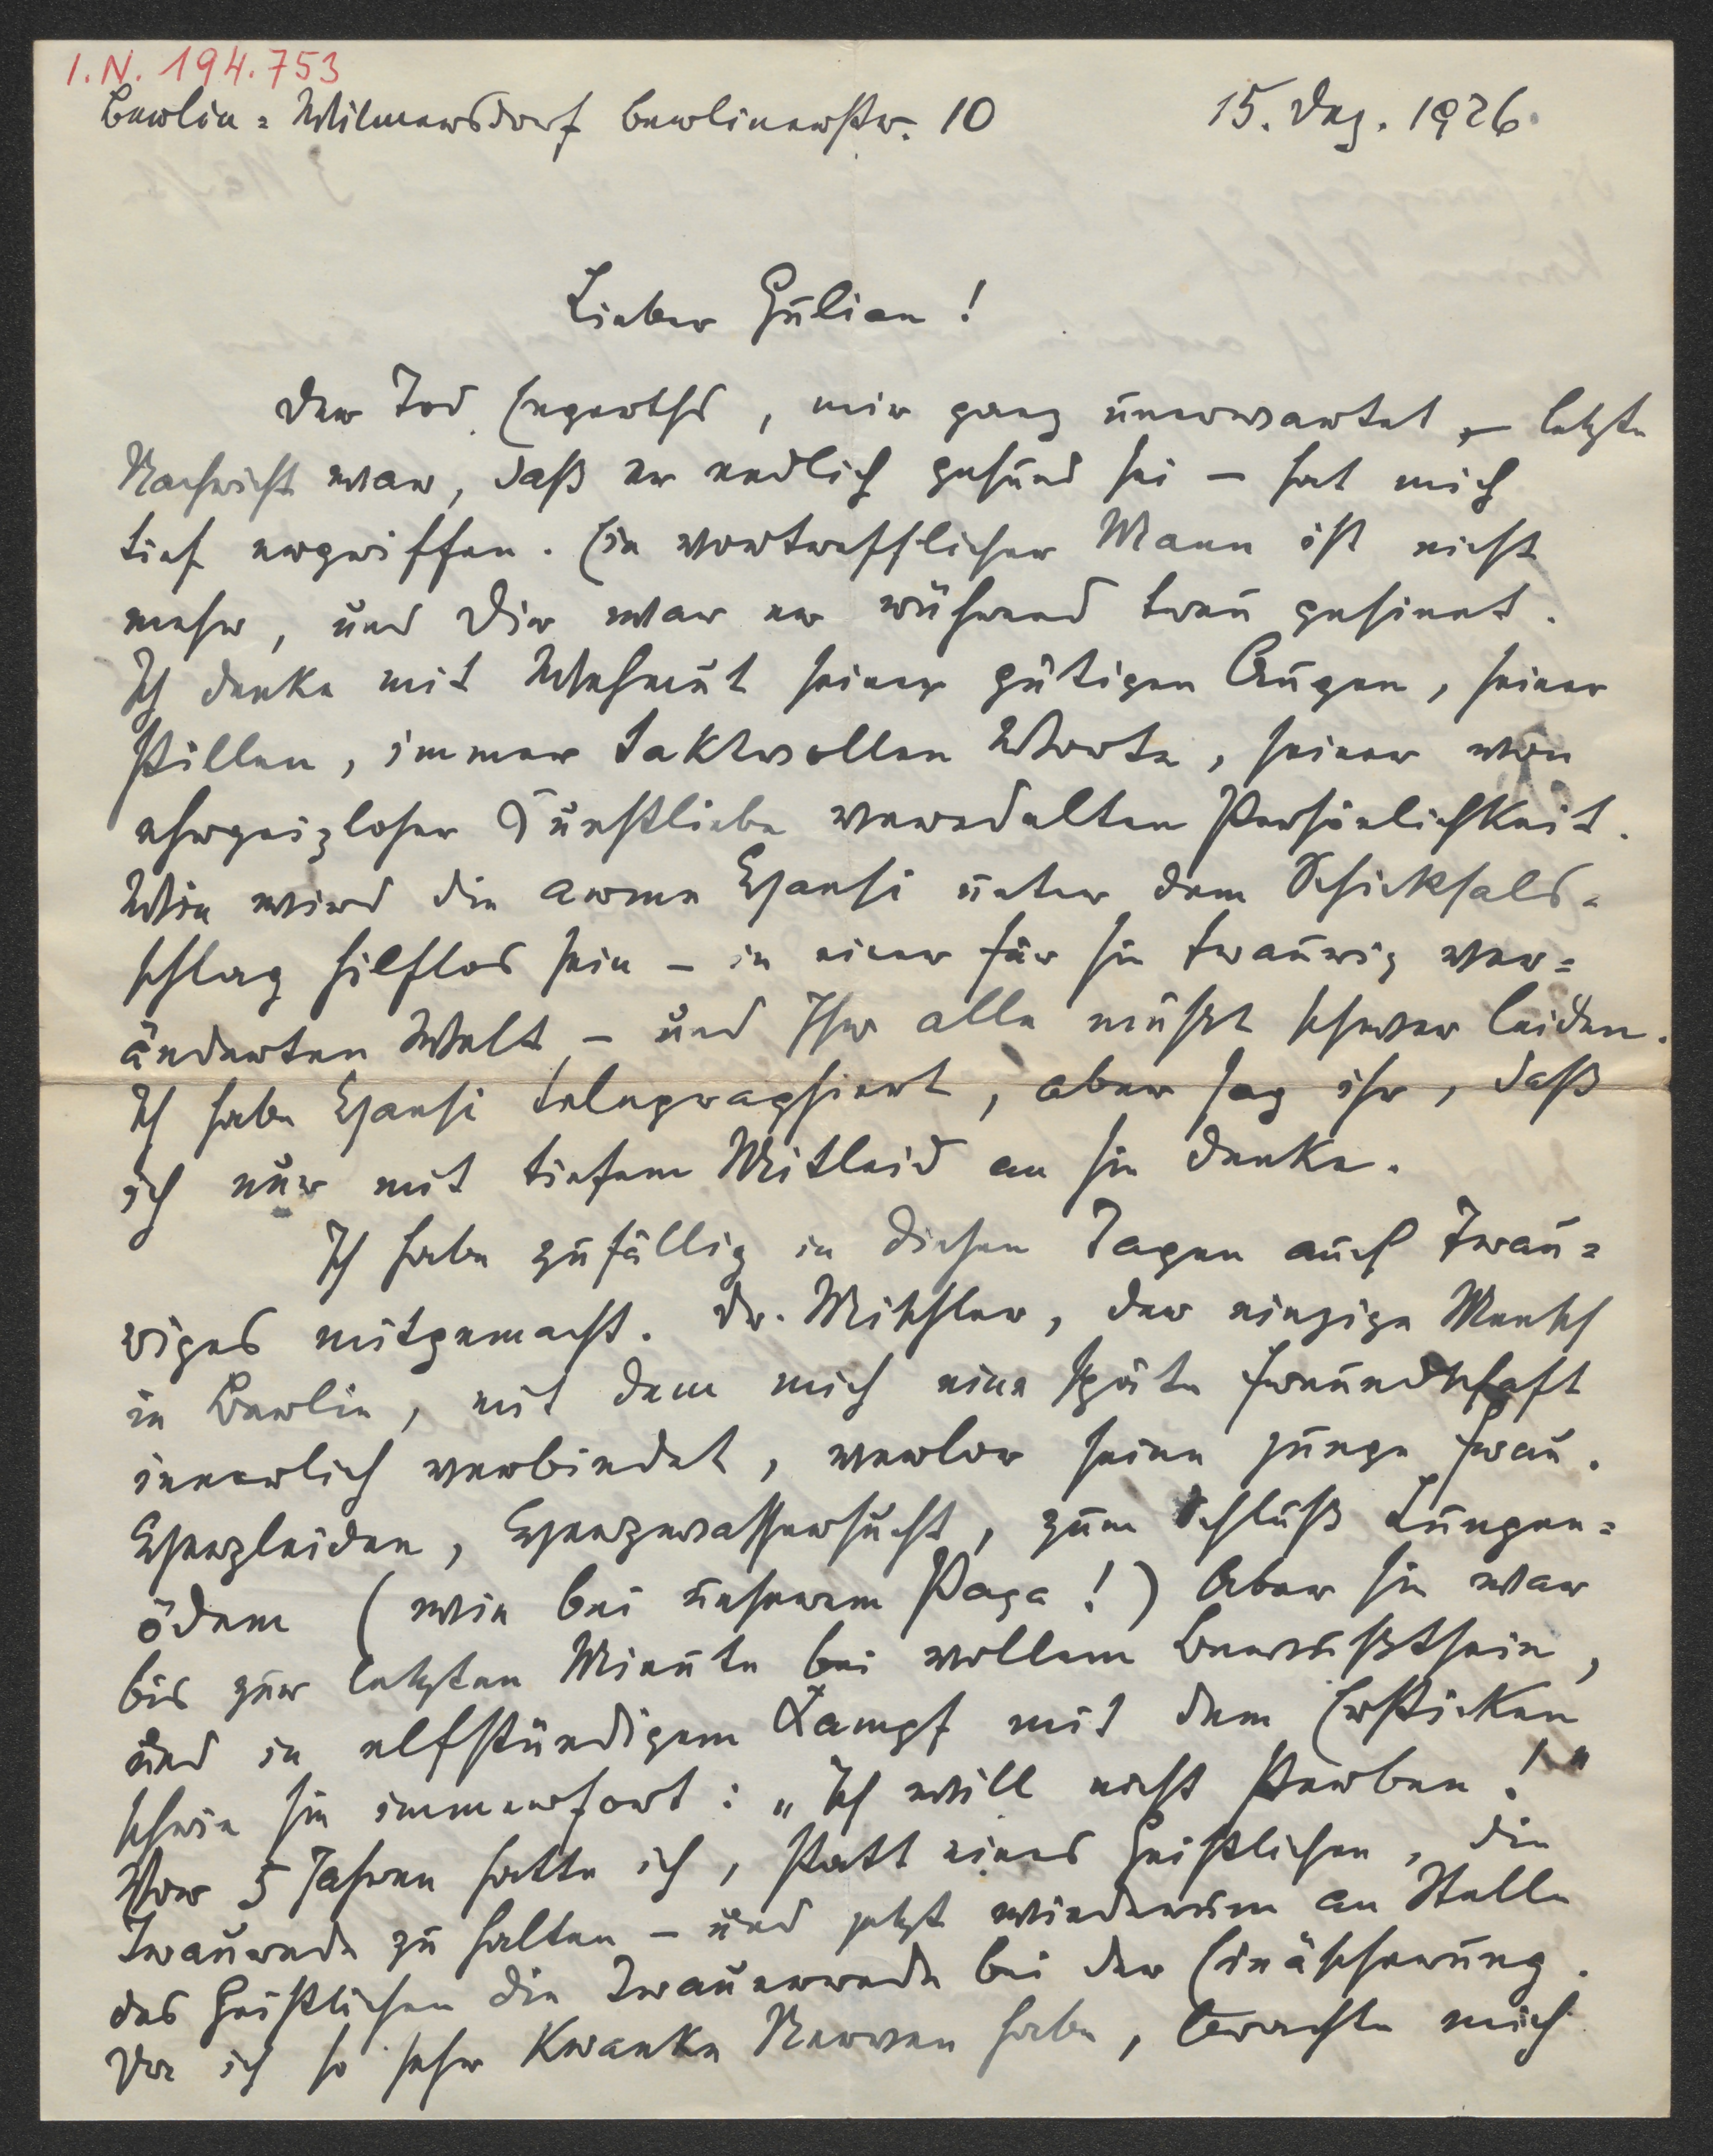 I.N. 194.753
Berlin-Wilmersdorf Berlinerstr. 10 15. Dez. 1926.
Lieber Julian!
Der Tod Engerths, mir ganz unerwartet, – letzte
Nachricht war, daß er endlich gesund sei – hat mich
tief ergriffen. Ein vortrefflicher Mann ist nicht
mehr, und Dir war er rührend treu gesinnt.
Ich denke mit Wehmut seiner gütigen Augen, seiner
stillen, immer taktvollen Worte, seiner von
ehrgeizloser Kunstliebe veredelten Persönlichkeit.
Wie wird die arme Hansi unter dem Schicksals-
schlag hilflos sein – in einer für sie traurig ver-
änderten Welt – und Ihr alle müßt schwer leiden.
Ich habe Hansi telegraphiert, aber sag ihr, daß
ich nur mit tiefem Mitleid an sie denke.
Ich habe zufällig in diesen Tagen auch Trau-
riges mitgemacht. Dr. , der einzige Mensch
in Berlin, mit dem mich eine späte Freundschaft
innerlich verbindet, verlor seine junge Frau.
Herzleiden, Herzwassersucht, zum Schluß Lungen-
ödem (wie bei unserem Papa!) Aber sie war
bis zur letzten Minute bei vollem Bewußtsein,
und in elfstündigem Kampf mit dem Ersticken
schrie sie immerfort: „Ich will nicht sterben!"
Vor 5 Jahren hatte ich, statt eines Geistlichen, die
Traurede zu halten – und jetzt wiederum an Stelle
des Geistlichen die Trauerrede bei der Einäscherung.
Da ich so sehr kranke Nerven habe, brachte mich